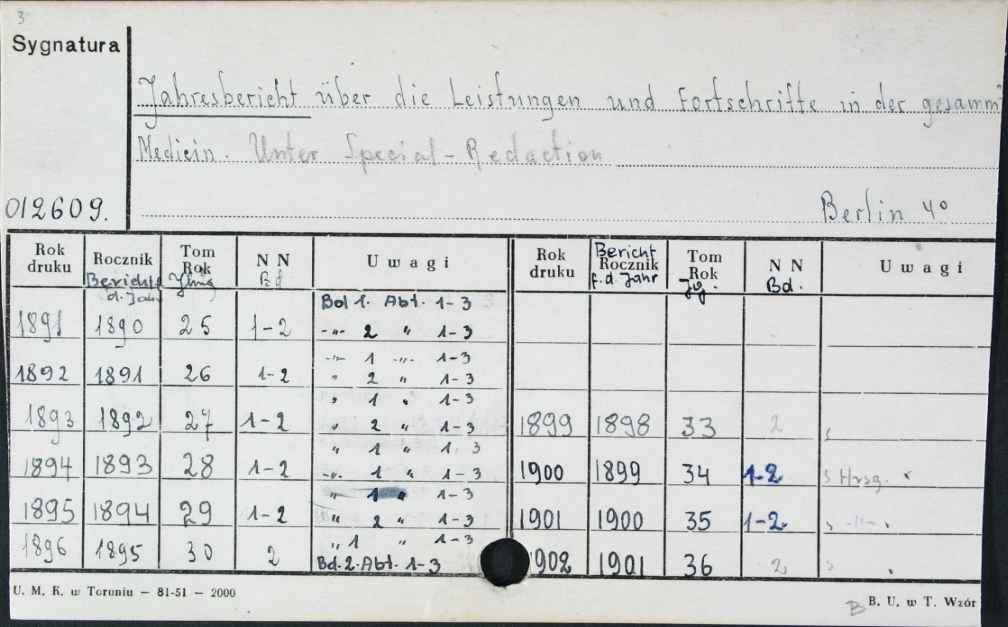 3
Sygnatura
Jahresbericht über die Leistungen und Fortschritte in der gesamm
Medicin. Unter Special-Redaction
012609.
Berlin 4°
Rok druku Rocznik Tom Rok N N Uwagi Rok druku Bericht Rocznik f. d. Jahr Tom Rok Jg. N N Bd. Uwagi
Bericht d. Jahr Bd
Bd 1. Abt. 1-3
1891 1890 25 1-2 -"- 2 " 1-3
-"- 1 -"- 1-3
1892 1891 26 1-2 " 2 " 1-3
" 1 " 1-3
1893 1892 27 1-2 " 2 " 1-3 1899 1898 33 2
" 1 " 1, 3
1894 1893 28 1-2 -"- 1 " 1-3 1900 1899 34 1-2 Hrsg.
" 1 " 1-3
1895 1894 29 1-2 " 2 " 1-3 1901 1900 35 1-2 -"-
" 1 " 1-3
1896 1895 30 2 Bd. 2. Abt. 1-3 1902 1901 36 2
U. M. K. w Toruniu — 81-51 — 2000
B B. U. w T. Wzór